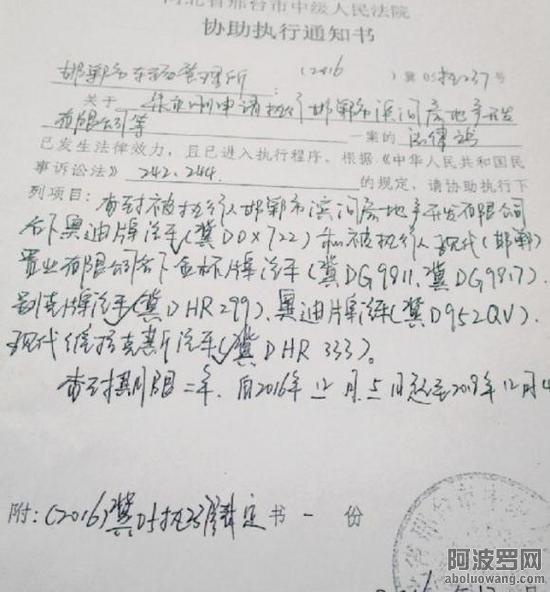 河北省邢台市中级人民法院
协助执行通知书
邯郸市车辆管理所: (2016)冀05执237号
关于 申请执行邯郸市滨河房地产开发
有限公司等 一案的法律
已发生法律效力,且已进入执行程序。根据《中华人民共和国民
事诉讼法》242、244 的规定,请协助执行下
列项目:查封被执行人邯郸市滨河房地产开发有限公司
名下奥迪牌汽车(冀D0X722)和被执行人现代(邯郸)
置业有限公司名下金杯牌汽车(冀DG9811、冀DG9817)、
别克牌汽车(冀DHR299)、奥迪牌汽车(冀D952QV)、
现代维拉克斯汽车(冀DHR333)。
查封期限二年,自2016年12月5日起至2019年12月4
附:(2016)冀05执237 裁定书一份
阿波罗网
aboluowang.com